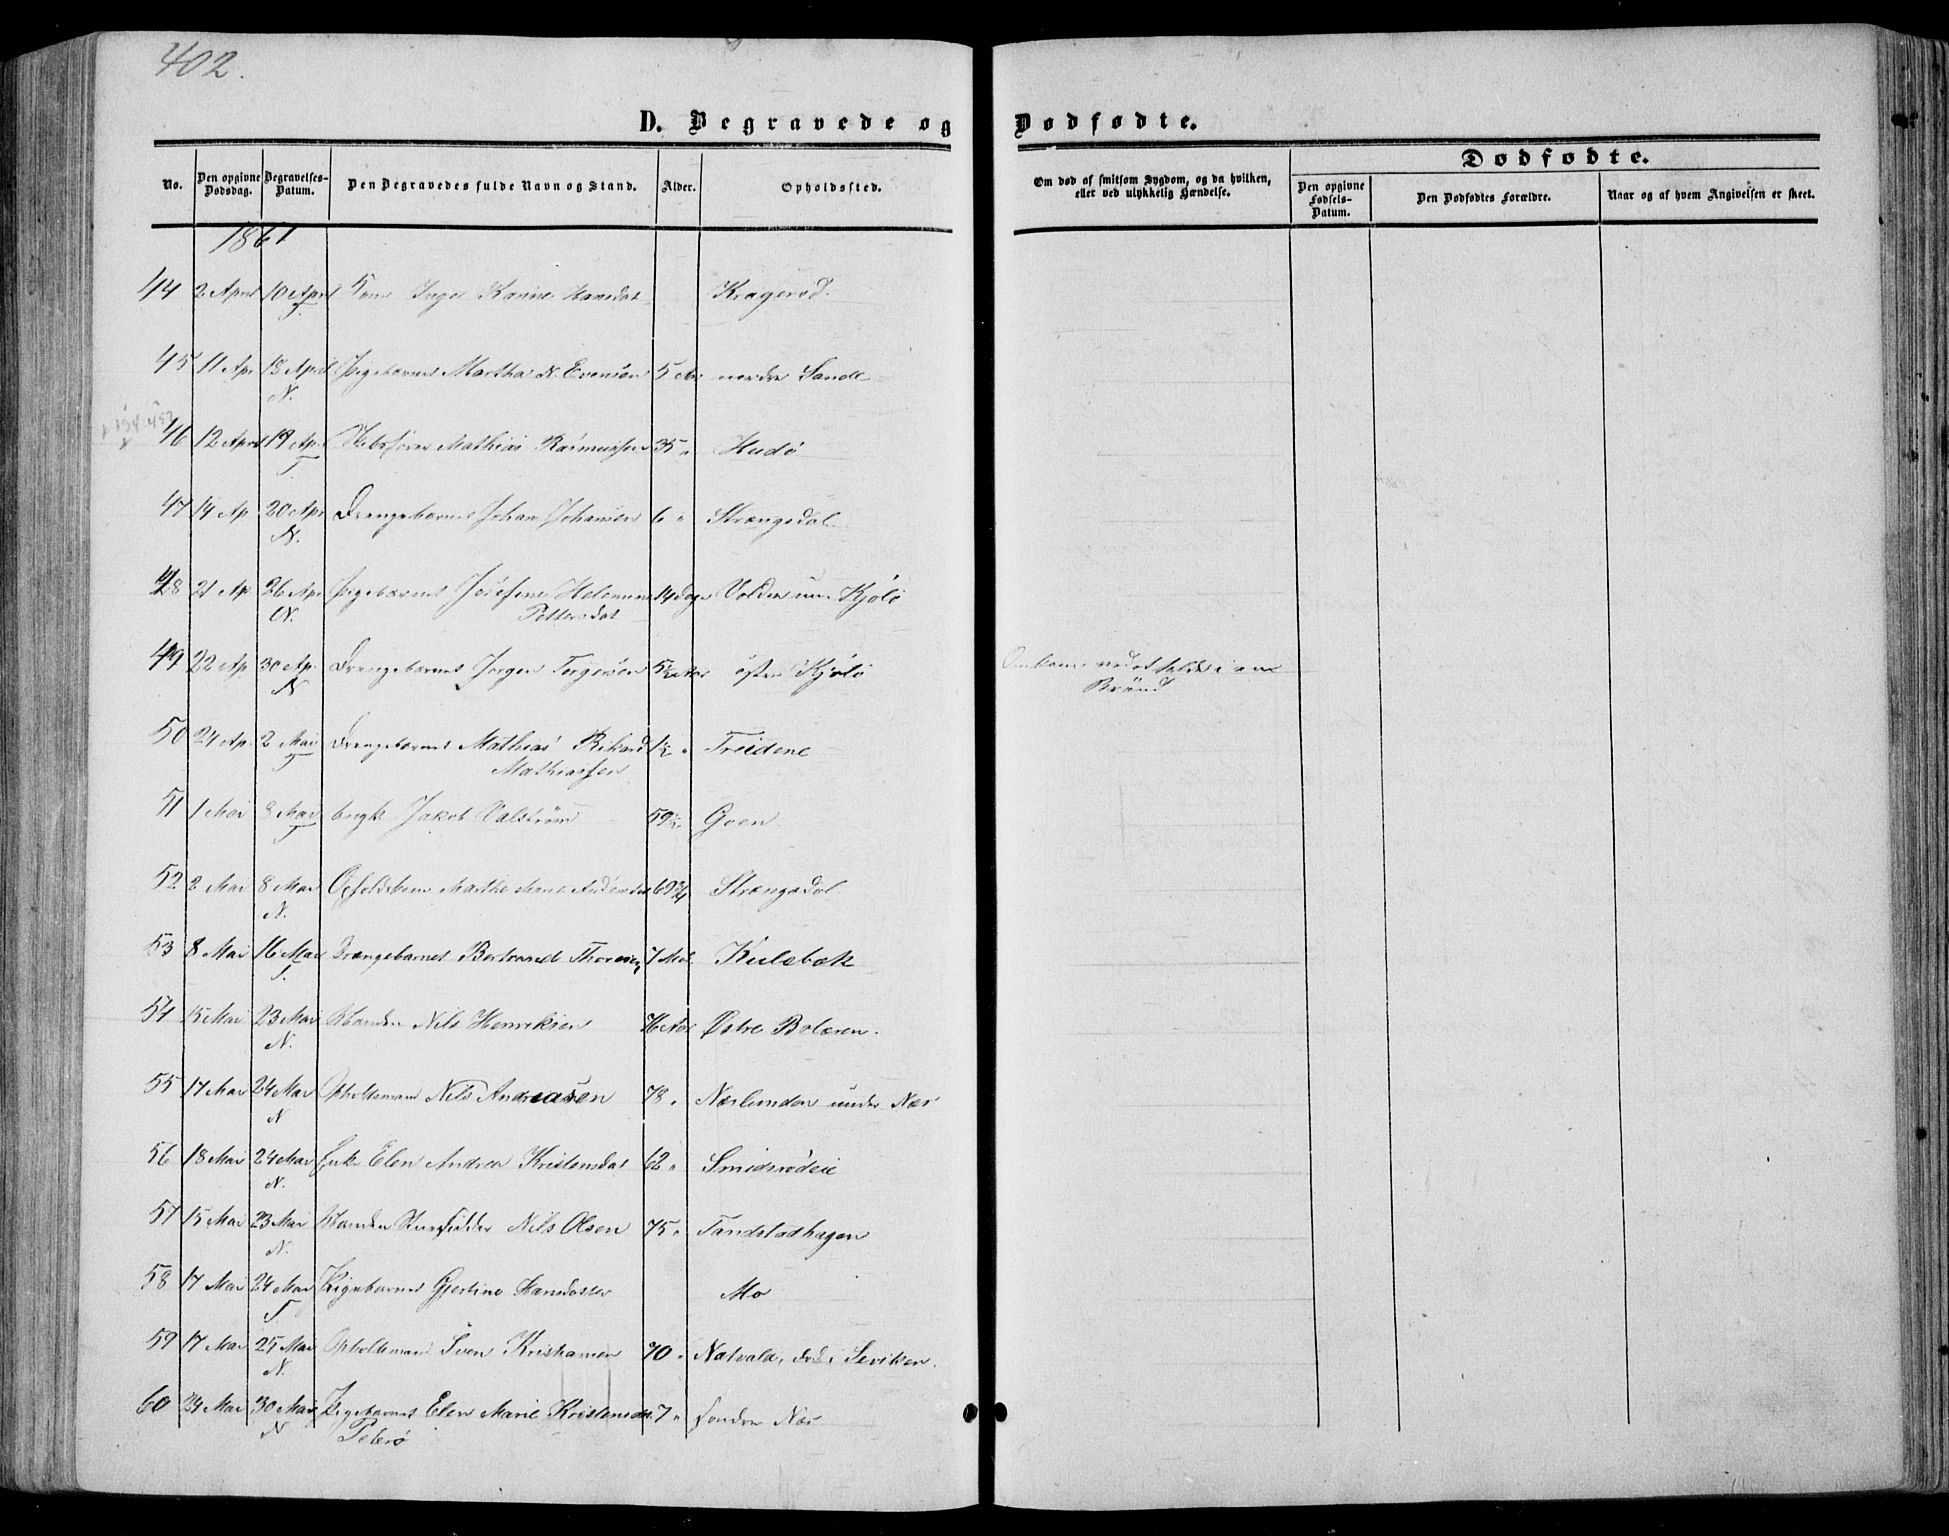 402.
D. Begravede og Dødfødte.
No. Den opgivne Dødsdag. Begravelses-Datum. Den Begravedes fulde Navn og Stand. Alder. Opholdssted. Om død af smitsom Sygdom, og da hvilken, eller ved ulykkelig Hændelse.
Dødfødte.
Den opgivne Fødsels-Datum. Den Dødfødtes Forældre. Naar og af hvem Angivelsen er skeet.
1861
44 2 April 10 April Inger Karine Hansdat Kragerød.
T.
45 11 Apr 18 April Pigebarnet Martha N. Evensen 5 Aar nordre Sande
N.
46 12 April 19 Ap. Mathias Rasmussen 35 " Hudø
T
47 14 Ap 20 Apr Drengebarnet Johan Johansen 6 " Strængsdal
N.
48 21 Ap. 26 Apr Pigebarnet Josefine Helene 14 Dage Volden un. Kjølø
N. Pettersdat
49 22 Ap 30 Ap. Drengebarnet Jørgen Torgersen 5½ Aar østre Kjølø Omkom ved at falde i en
N Brønd
50 24 Ap. 2 Mai Drengebarnet Mathias Rikard 1½ " Treidene
T Mathiassen
51 1 Mai 8 Mai Jakob Valstrøm 59½ Goen
T
52 2 Mai 8 Mai Marthe Marie 69¾ Strængsdal
N.
53 8 Mai 16 Mai Drengebarnet Bertrand Thoresen 7 Md. Kulebak
T.
54 15 Mai 23 Mai Manden Nils Henriksen 76 Aar Østre Bolæren.
N.
55 17 Mai 24 Mai Opholdsmand Nils Andreasen 78 " Næslunden under Næs
N
56 18 Mai 24 Mai Enke Elen Andrea Kristensdat 62 " Smidsrødeie
N.
57 15 Mai 23 Mai Manden Nils Olsen 75 " Tandstadhagen
N.
58 17 Mai 24 Mai Pigebarnet Gjertine Hansdatter Mo
T
59 17 Mai 25 Mai Opholdsmand Sven Kristiansen 70 " Natvald, død i Leviken.
N.
60 24 Mai 30 Mai Pigebarnet Elen Marie Kristensdt. 7 " søndre Næs
N